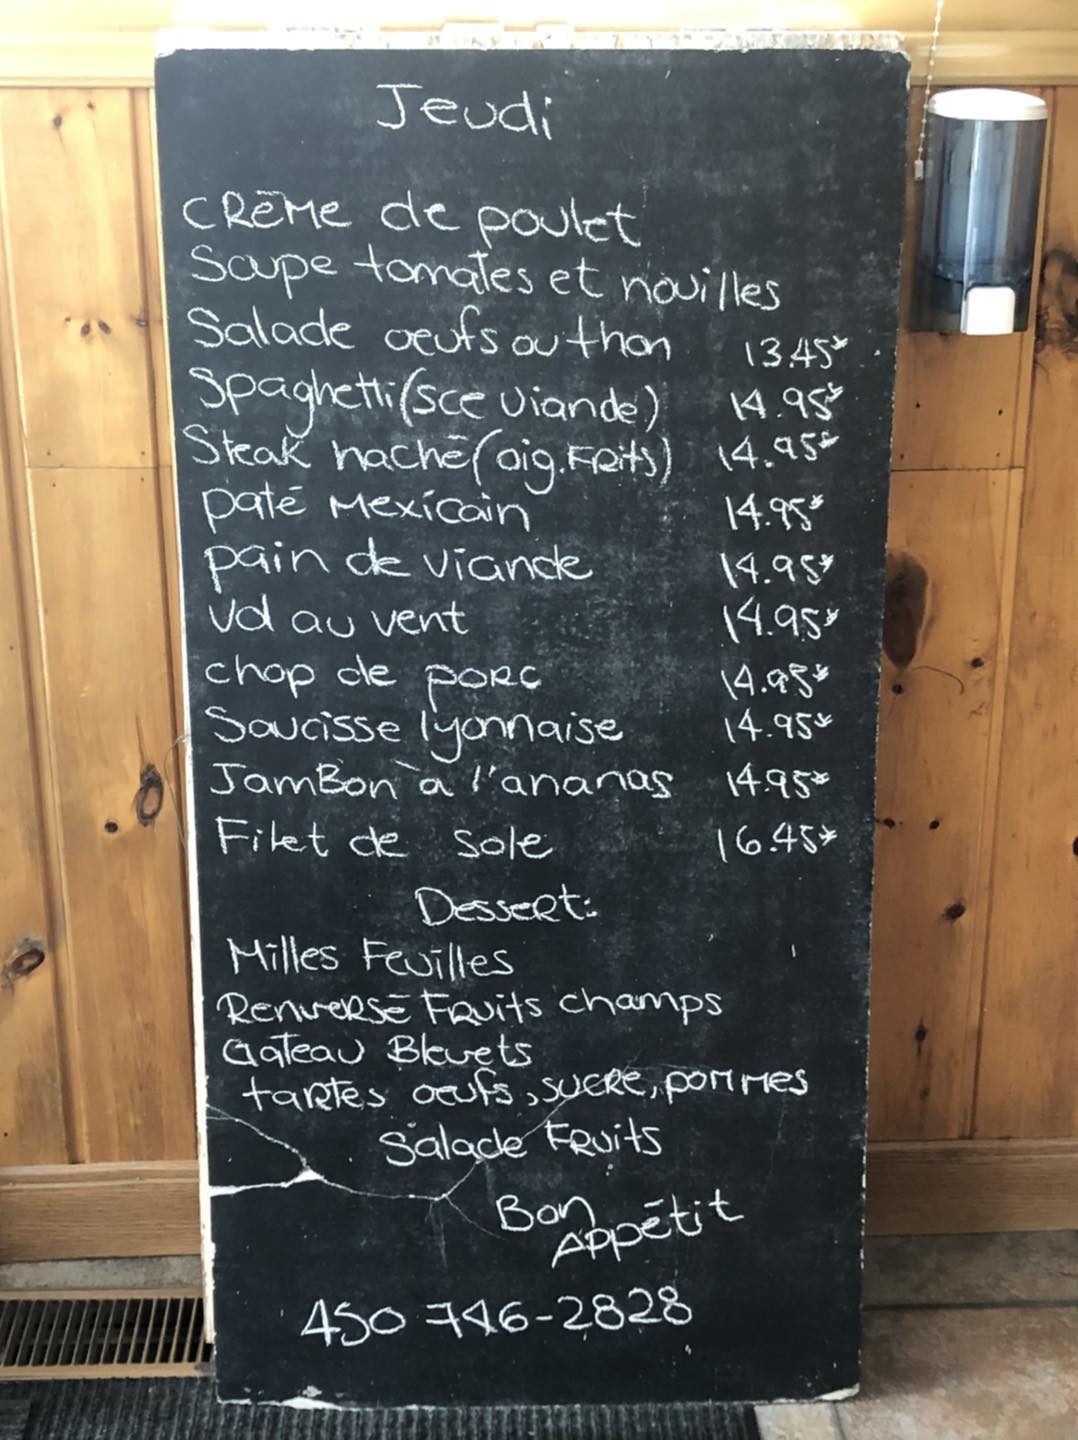 Jeudi
CRēMe de poulet
Soupe tomates et nouilles
Salade oeufs ou thon 13.45*
Spaghetti (sce viande) 14.95*
Steak haché (oig. FRits) 14.95*
paté Mexicain 14.95*
pain de viande 14.95*
Vol au vent 14.95*
chop de poRc 14.95*
Saucisse lyonnaise 14.95*
JamBon à l'ananas 14.95*
Filet de sole 16.45*
DesseRt:
Milles Feuilles
RenveRsé FRuits champs
Gateau Bleuets
taRtes oeufs, sucRe, pommes
Salade FRuits
Bon
Appétit
450 746-2828